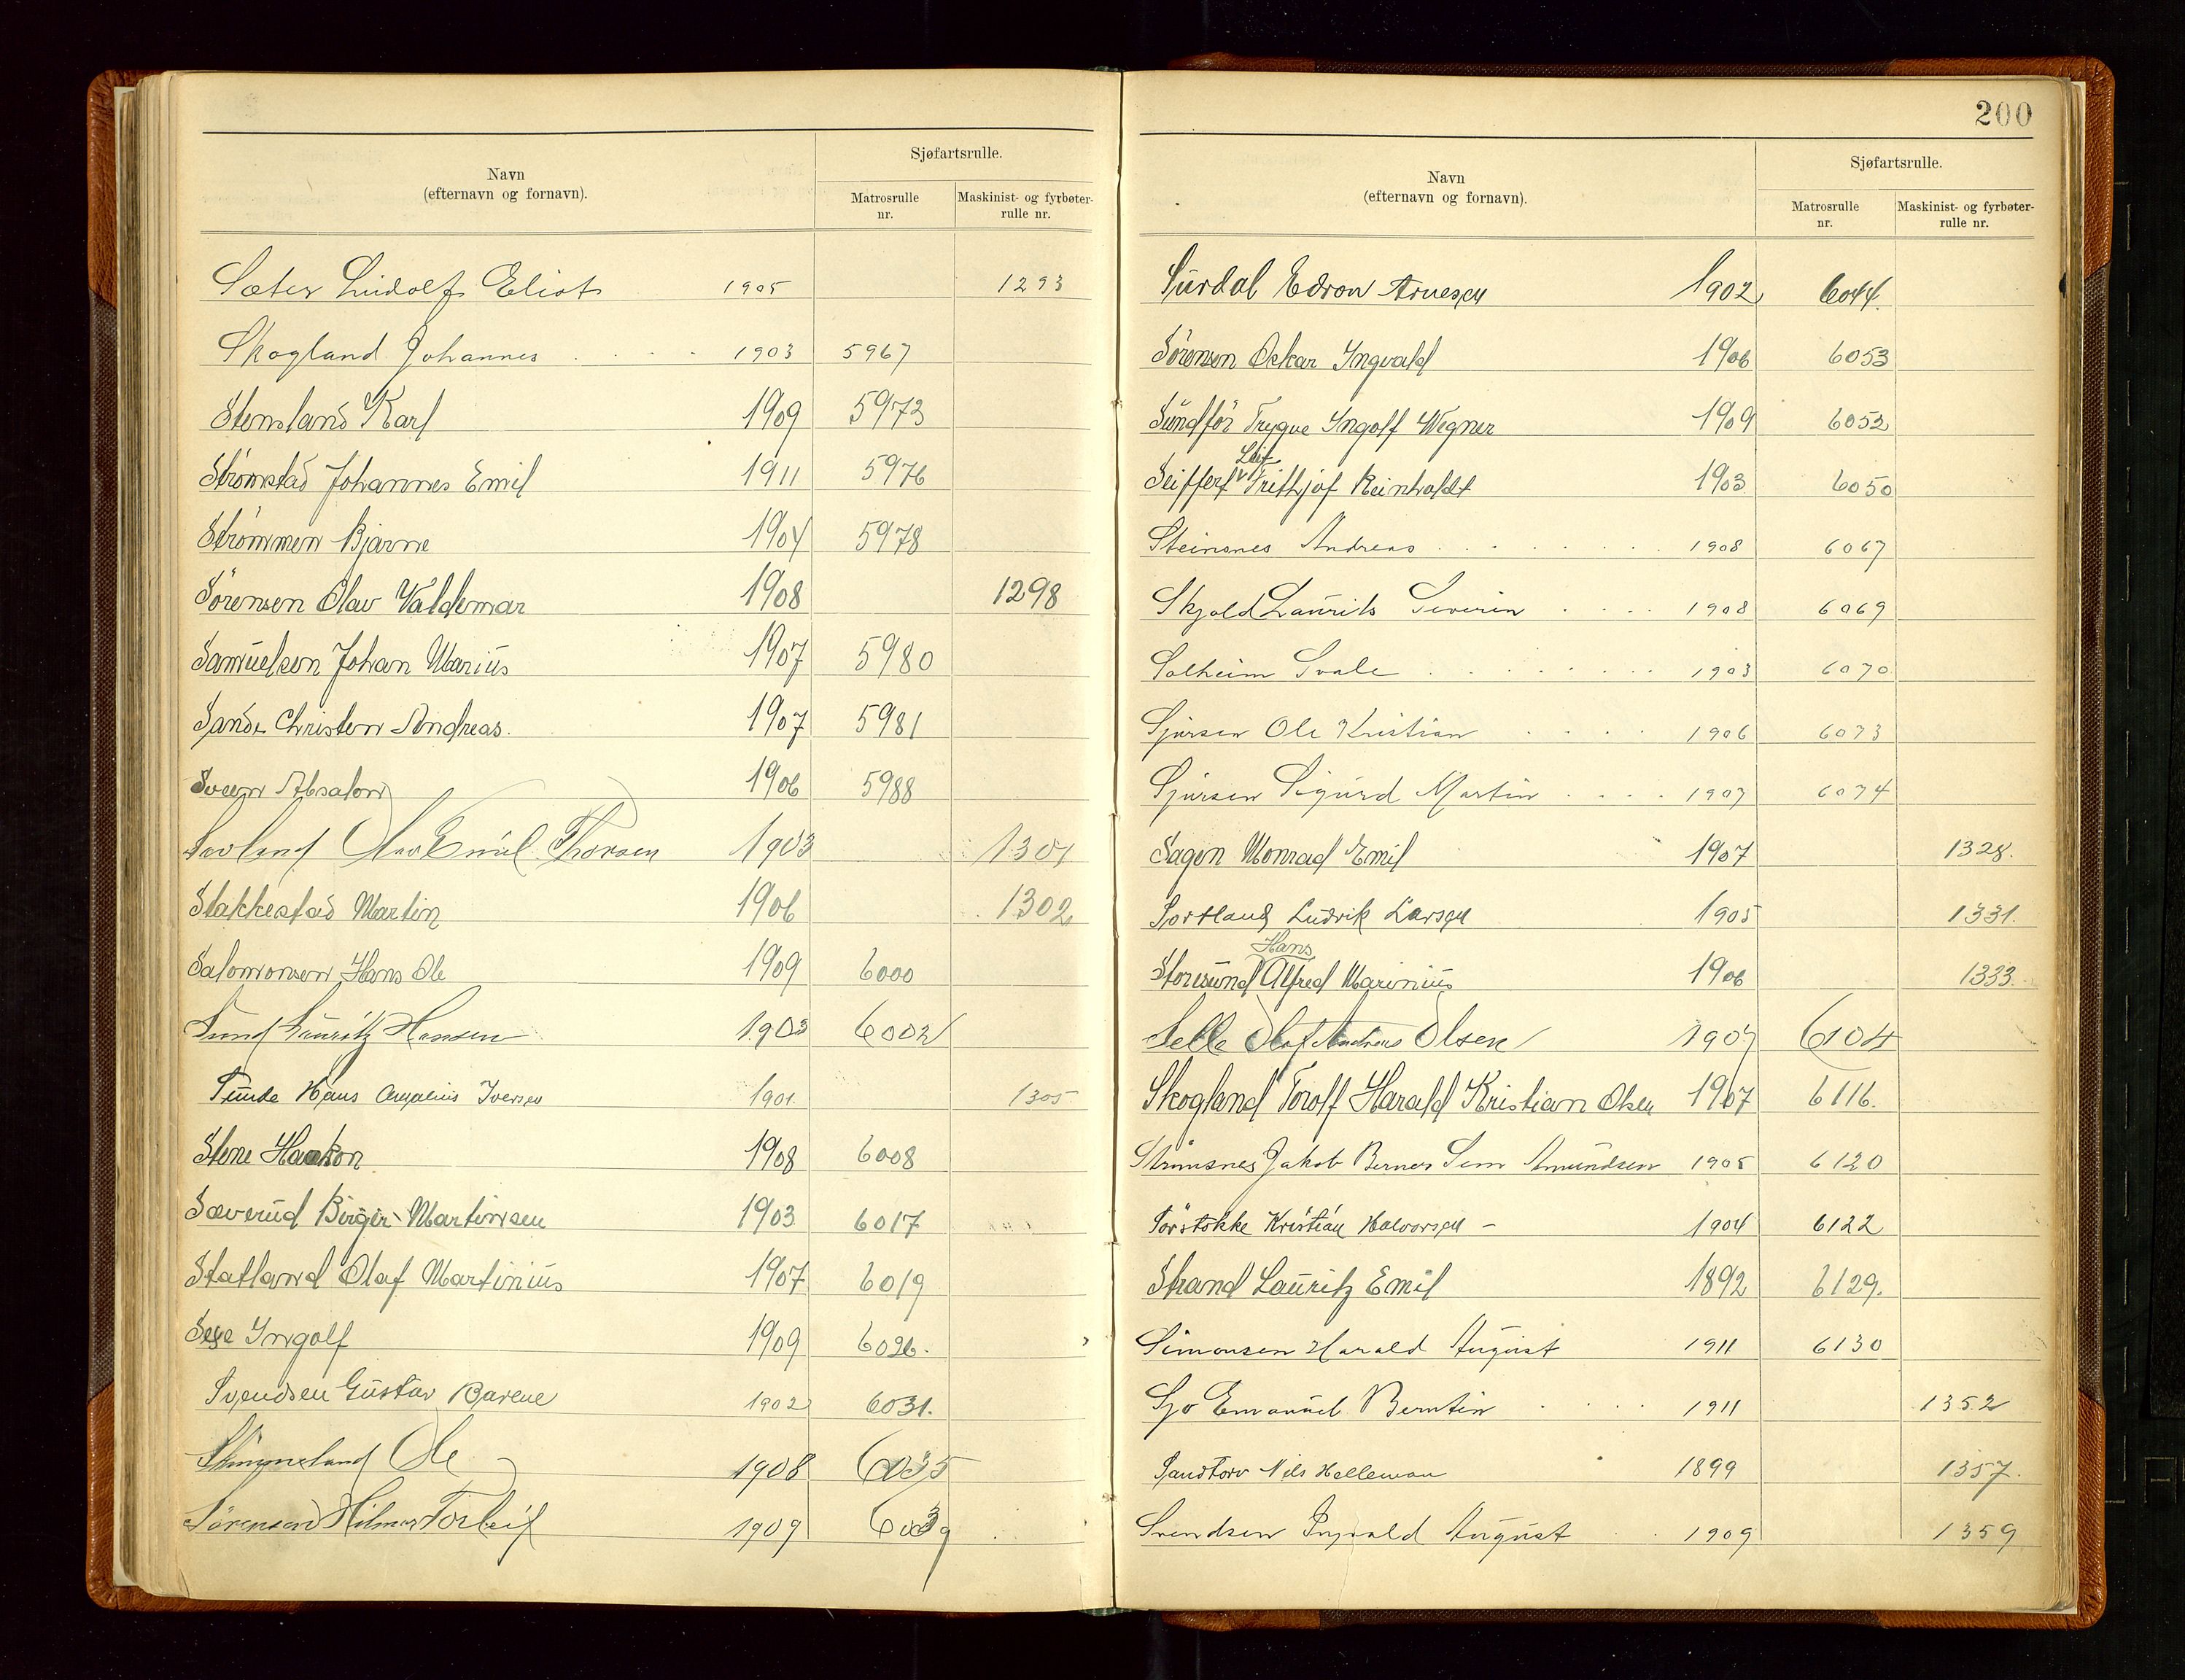 Navn
(efternavn og fornavn).
Sjøfartsrulle.
Matrosrulle nr.
Maskinist- og fyrbøter-rulle nr.
Sæter Lindolf Eliot 1905 1293
Skogland Johannes . . . . 1903 5967
Stensland Karl 1909 5973
Strømstad Johannes Emil 1911 5976
Strømmen Bjarne 1904 5978
Sörensen Olav Valdemar 1908 1298
Samuelsen Johan Marius 1907 5980
Sande Christen Andreas. 1907 5981
Sveen Absalon 1906 5988
Savland Olav Emil Thorsen 1903 1301
Stakkestad Martin 1906 1302
Salomonsen Hans Ole 1909 6000
Sund Lauritz Hansen 1903 6002
Sunde Hans Iversen 1901. 1305
Stene Haakon 1908 6008
Sæverud Birger Martinsen 1903 6017
Statland Olaf Martinius 1907 6019
Sexe Ingolf 1909 6026.
Svendsen Gustav Bjarne 1902 6031.
Skimmeland Ole 1908 6035
Sørensen Hilmar Torleif 1909 6039
200
Navn
(efternavn og fornavn).
Sjøfartsrulle.
Matrosrulle nr.
Maskinist- og fyrbøter-rulle nr.
Surdal Edron Arnesen 1902 6044.
Sörensen Oskar Ingvald 1906 6053
Sundför Trygve Ingolf Wegner 1909 6052
Leif
Seiffert Frithjof Reinholdt 1903 6050
Steinsnes Andreas . . . . . . . 1908 6067
Skjold Laurits Severin . . . . 1908 6069
Solheim Svale . . . . . . . 1903 6070
Sjursen Ole Kristian . . . . 1906 6073
Sjursen Sigurd Martin . . . . 1907 6074
Sagen Monrad Emil 1907 1328.
Sortland Ludvik Larsen 1905 1331.
Hans
Storesund Alfred Marinius 1906 1333.
Selle Olaf Andreas Olsen 1907 6104
Skogland Torolf Harald Kristian Olsen 1907 6116.
Strømsnes Jakob Berner Sem Amundsen 1905 6120
Sörstokke Kristian Halvorsen - 1904 6122
Strand Lauritz Emil 1892 6129.
Simonsen Harald August 1911 6130
Sjo Emanuel Berntin . . . . 1911 1352
Sandtorv Nils Helleman 1899 1357.
Svendsen Ingvald August . . 1909 1359